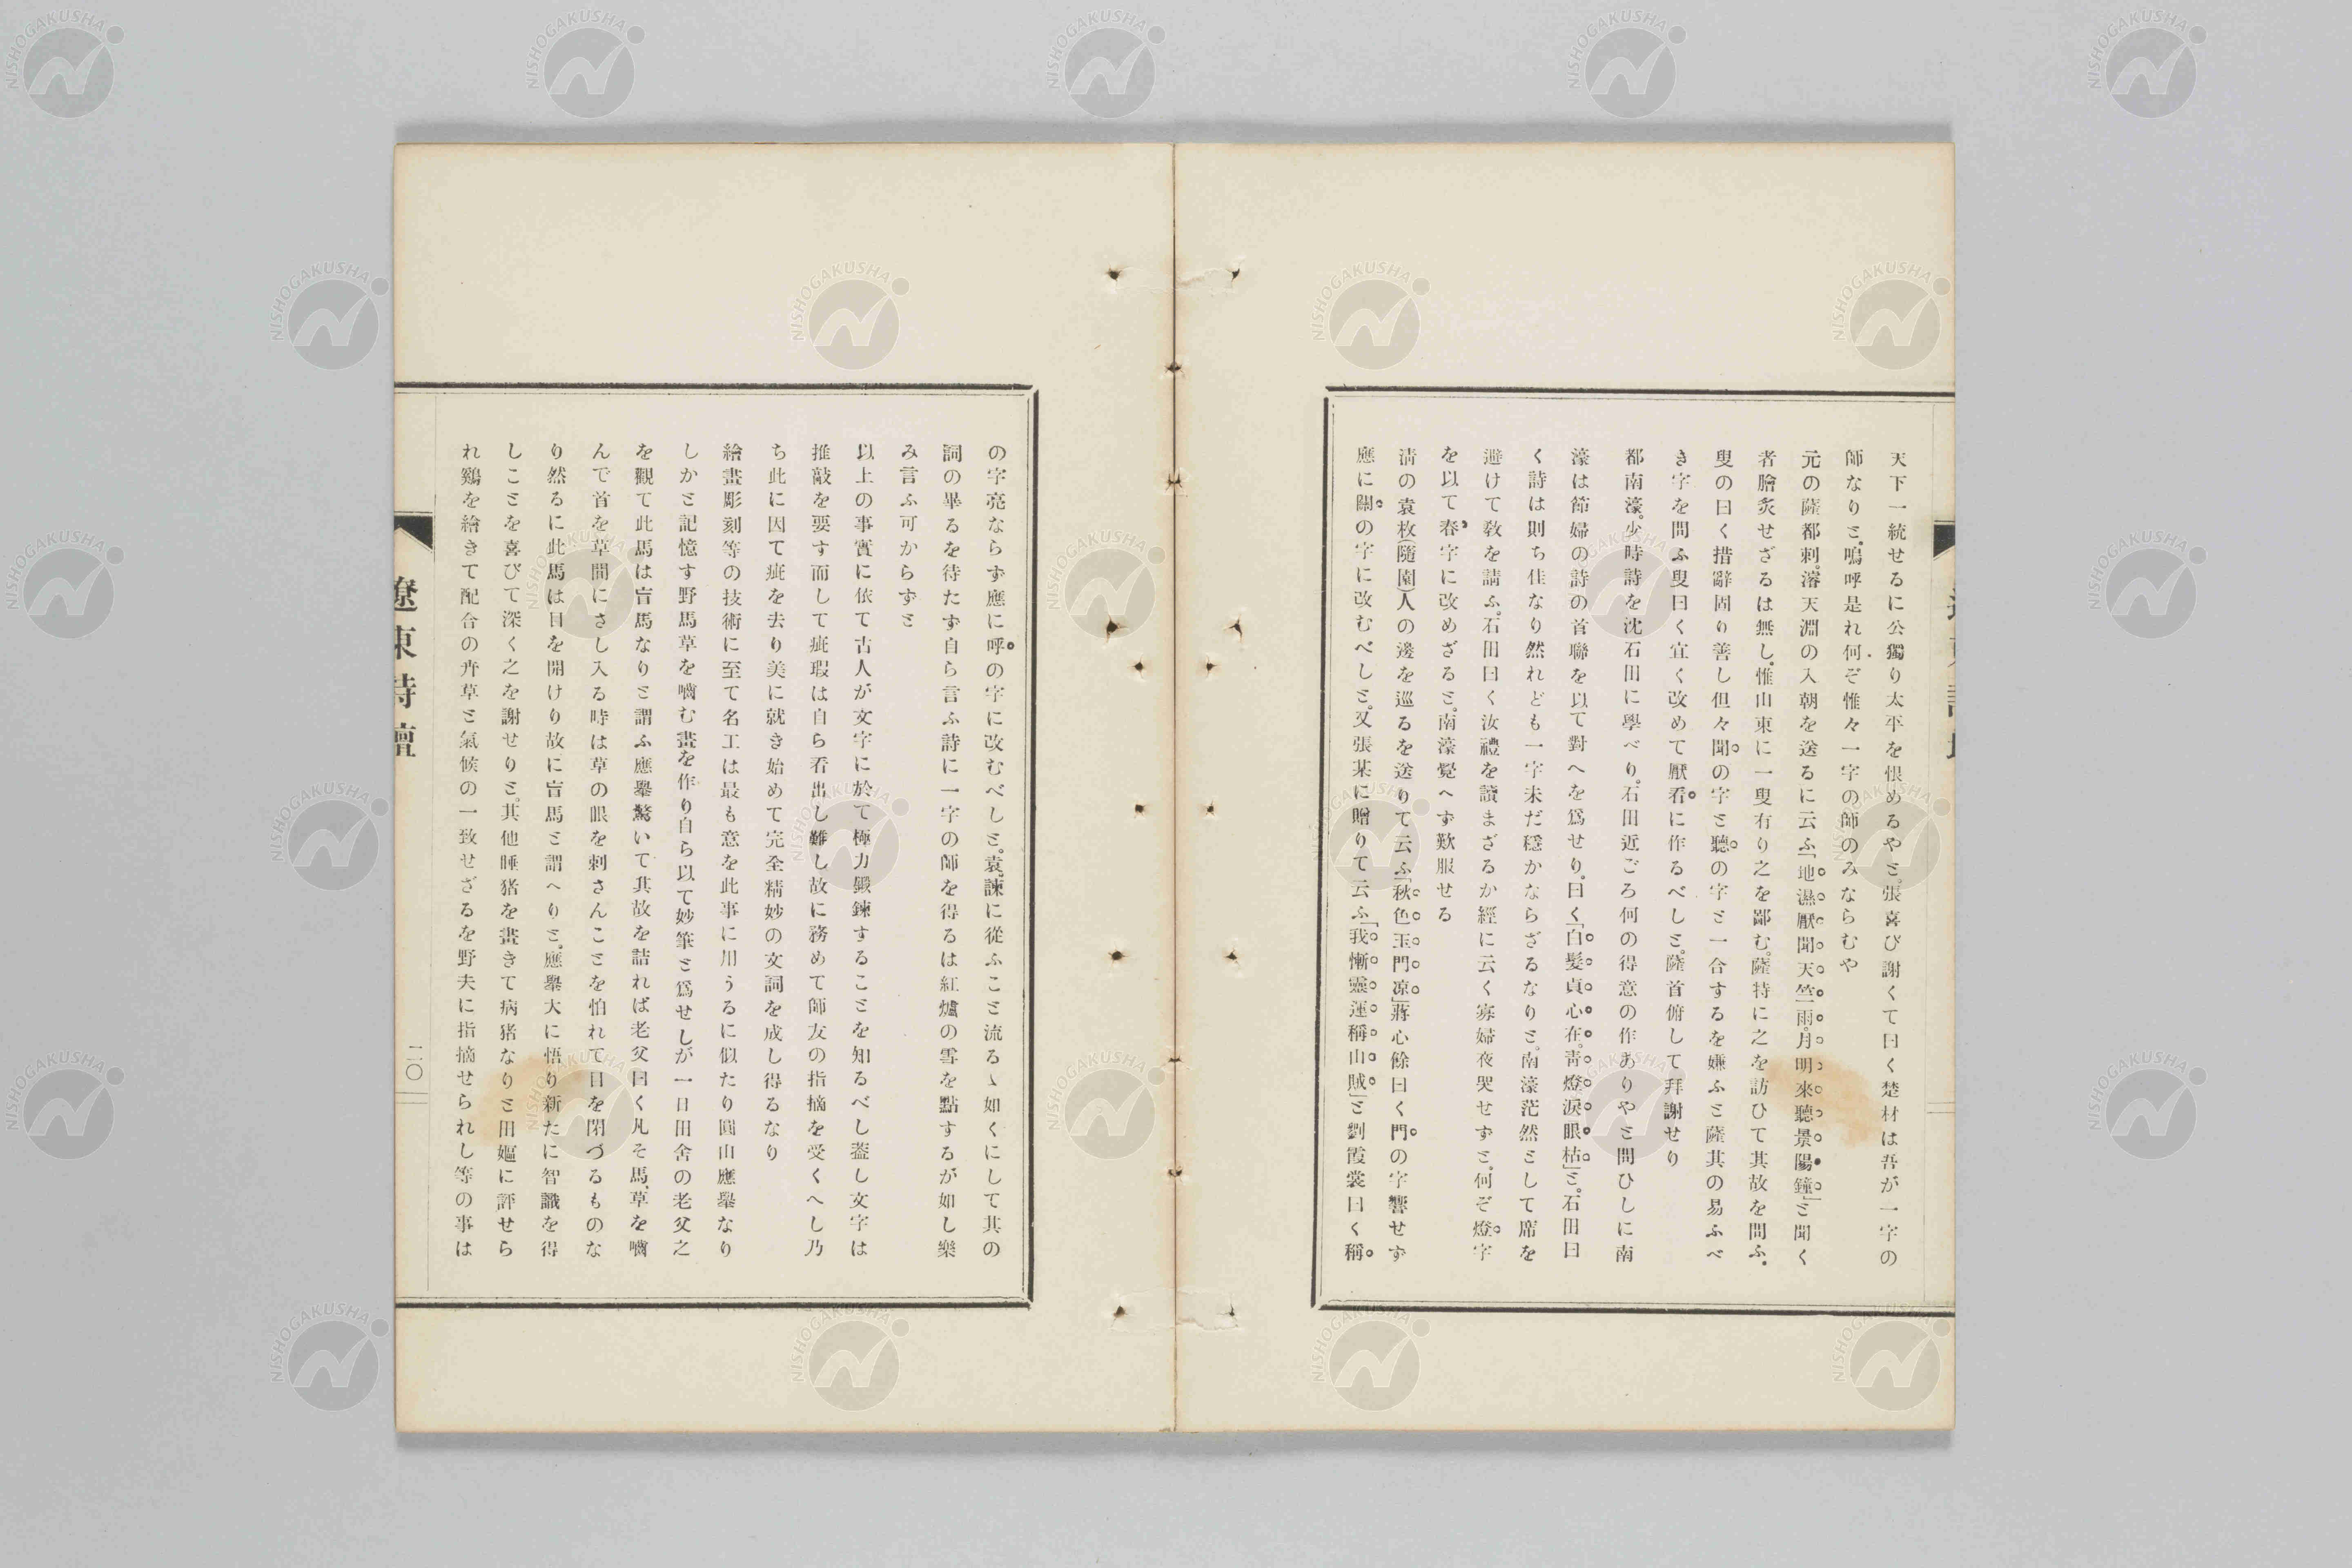 天下一統せるに公獨り太平を恨めるやと。張喜び謝くて曰く楚材は吾が一字の
師なりと。嗚呼是れ何ぞ惟々一字の師のみならむや
元の薩都剌。濬天淵の入朝を送るに云ふ「地濕厭聞天竺雨。月明來聽景陽鐘」と聞く
者膾炙せざるは無し。惟山東に一叟有り之を鄙む。薩特に之を訪ひて其故を問ふ。
叟の曰く措辭固り善し但々聞の字と聽の字と一合するを嫌ふと薩其の易ふべ
き字を問ふ叟曰く宜く改めて厭看に作るべしと。薩首俯して拜謝せり
都南濠。少時詩を沈石田に學べり。石田近ごろ何の得意の作ありやと問ひしに南
濠は節婦の詩の首聯を以て對へを爲せり。曰く「白髮貞心在。靑燈淚眼枯」と。石田曰
く詩は則ち佳なり然れども一字未だ穩かならざるなりと。南濠茫然として席を
避けて敎を請ふ。石田曰く汝禮を讀まざるか經に云く寡婦夜哭せずと。何ぞ燈字
を以て春字に改めざると。南濠覺へず歎服せる
淸の袁枚(隨園)人の邊を巡るを送りて云ふ「秋色玉門凉」蔣心餘曰く門の字響せず
應に關の字に改むべしと。又張某に贈りて云ふ「我慚靈運稱山賊」と劉霞裳曰く稱
の字亮ならず應に呼の字に改むべしと。袁諫に從ふこと流るゝ如くにして其の
詞の畢るを待たず自ら言ふ詩に一字の師を得るは紅爐の雪を點するが如し樂
み言ふ可からずと
以上の事實に依て古人が文字に於て極力鍛鍊することを知るべし葢し文字は
推敲を要す而して疵瑕は自ら看出し難し故に務めて師友の指摘を受くへし乃
ち此に因て疵を去り美に就き始めて完全精妙の文詞を成し得るなり
繪畫彫刻等の技術に至て名工は最も意を此事に用うるに似たり圓山應擧なり
しかと記憶す野馬草を嚙む畫を作り自ら以て妙筆と爲せしが一日田舍の老父之
を觀て此馬は盲馬なりと謂ふ應擧驚いて其故を詰れば老父曰く凡そ馬、草を嚙
んで首を草間にさし入る時は草の眼を刺さんことを怕れて目を閉づるものな
り然るに此馬は目を開けり故に盲馬と謂へりと。應擧大に悟り新たに智識を得
しことを喜びて深く之を謝せりと。其他睡猪を畫きて病猪なりと田嫗に評せら
れ鷄を繪きて配合の卉草と氣候の一致せざるを野夫に指摘せられし等の事は
遼東詩壇
二〇